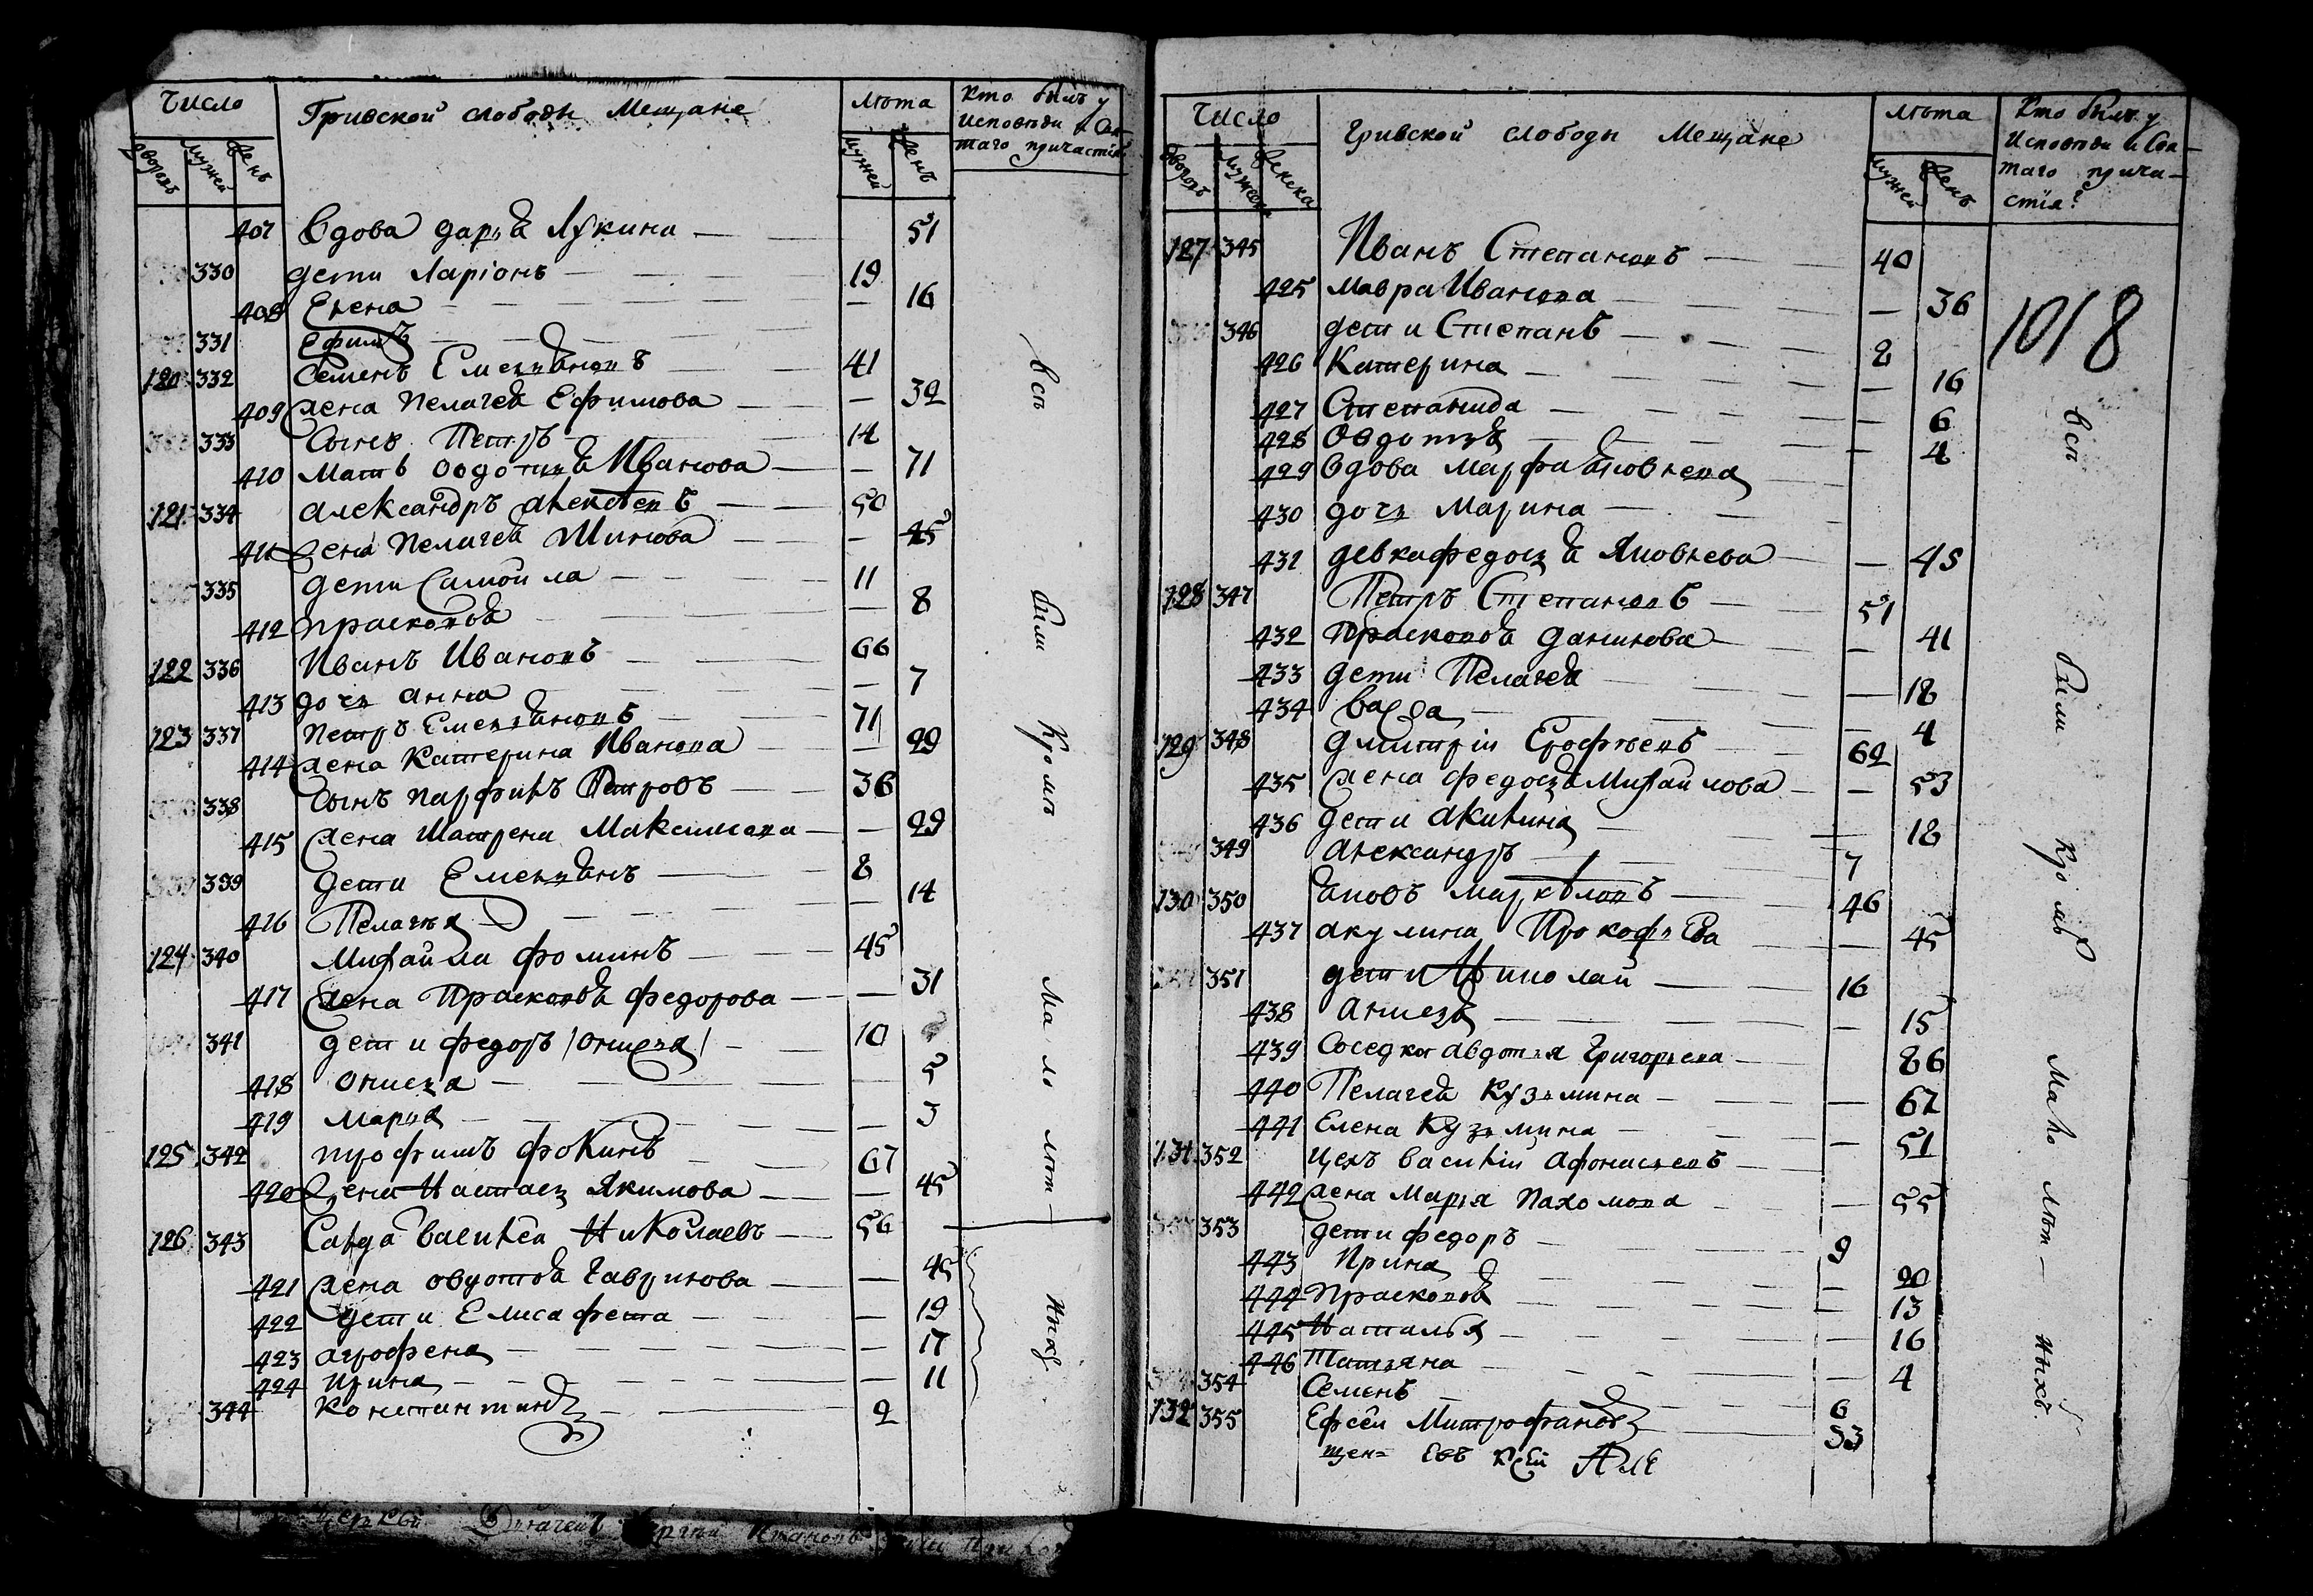 Число
Гривской слободы Мещане
Лѣта
Кто былъ у
Исповѣди и Свя-
таго причастія
дворовъ мужей женъ
мужей женъ
407 Вдова даръя Лукина — 51
330 дети Ларіонъ — 19
408 Елена — 16
331 Ефимъ
120 332 Семенъ Емельяновъ — 41
409 жена Пелагея Ефимова — 32
333 Сынъ Петръ — 14
410 Мать Овдотья Иванова — 71
121 334 Александръ Алексѣевъ — 50
411 жена Пелагея — 45
335 дети Самойла — 11
412 прасковья — 8
122 336 Иванъ Ивановъ — 66
413 дочь анна — 7
123 337 Петръ Емельяновъ — 71
414 жена Катерина Иванова — 29
338 Сынъ парфилъ Петровъ — 36
415 жена Матрена Максимова — 29
339 дети Емельянъ — 8
416 Пелагѣя — 14
124 340 Михайла фоминъ — 45
417 жена Прасковья федорова — 31
341 дети федоръ — 10
418 — 5
419 Марья — 3
125 342 трофимъ фокинъ — 67
420 жена Настасья Якимова — 45
126 343 Николаевъ — 56
421 жена овдотья Гаврилова — 45
422 дети Елисафета — 19
423 агрофена — 17
424 ирина — 11
344 Константинъ — 2
всѣ были Кромѣ Мало лѣт — ныхъ
Число
Гривской слободы Мещане
Лѣта
Кто былъ у
Исповѣди и Свя-
таго прича-
стія?
дворовъ мужеска женска
мужей женъ
127 345 Иванъ Степановъ — 40
425 Мавра Иванова — 36
1018
346 дети Степанъ — 2
426 Катерина — 16
427 Степанида — 6
428 Овдотья — 4
429 Вдова Марфа яковлева
430 дочь Марина
431 девка федосья Яковлева — 45
128 347 Петръ Степановъ — 51
432 Прасковья данилова — 41
433 дети Пелагея — 18
434 — 4
129 348 дмитрій Ерофѣевъ — 62
435 жена федосья Михайлова — 53
436 дети акилина — 18
349 александръ — 7
130 350 яковъ маркѣловъ — 46
437 акулина Прокофьева — 45
351 дети Николай — 16
438 — 15
439 Соседка авдотья Григорьева — 86
440 Пелагея Кузьмина — 67
441 Елена Кузьмина — 51
131 352 Цехъ василій афонасьевъ
442 жена Марья пахомова — 55
353 дети федоръ — 9
443 Ирина — 20
444 прасковья — 13
445 Наталья — 16
446 Татьяна — 4
354 Семенъ — 6
132 355 Митрофановъ — 53
всѣ были Кромѣ Мало лѣт — ныхъ